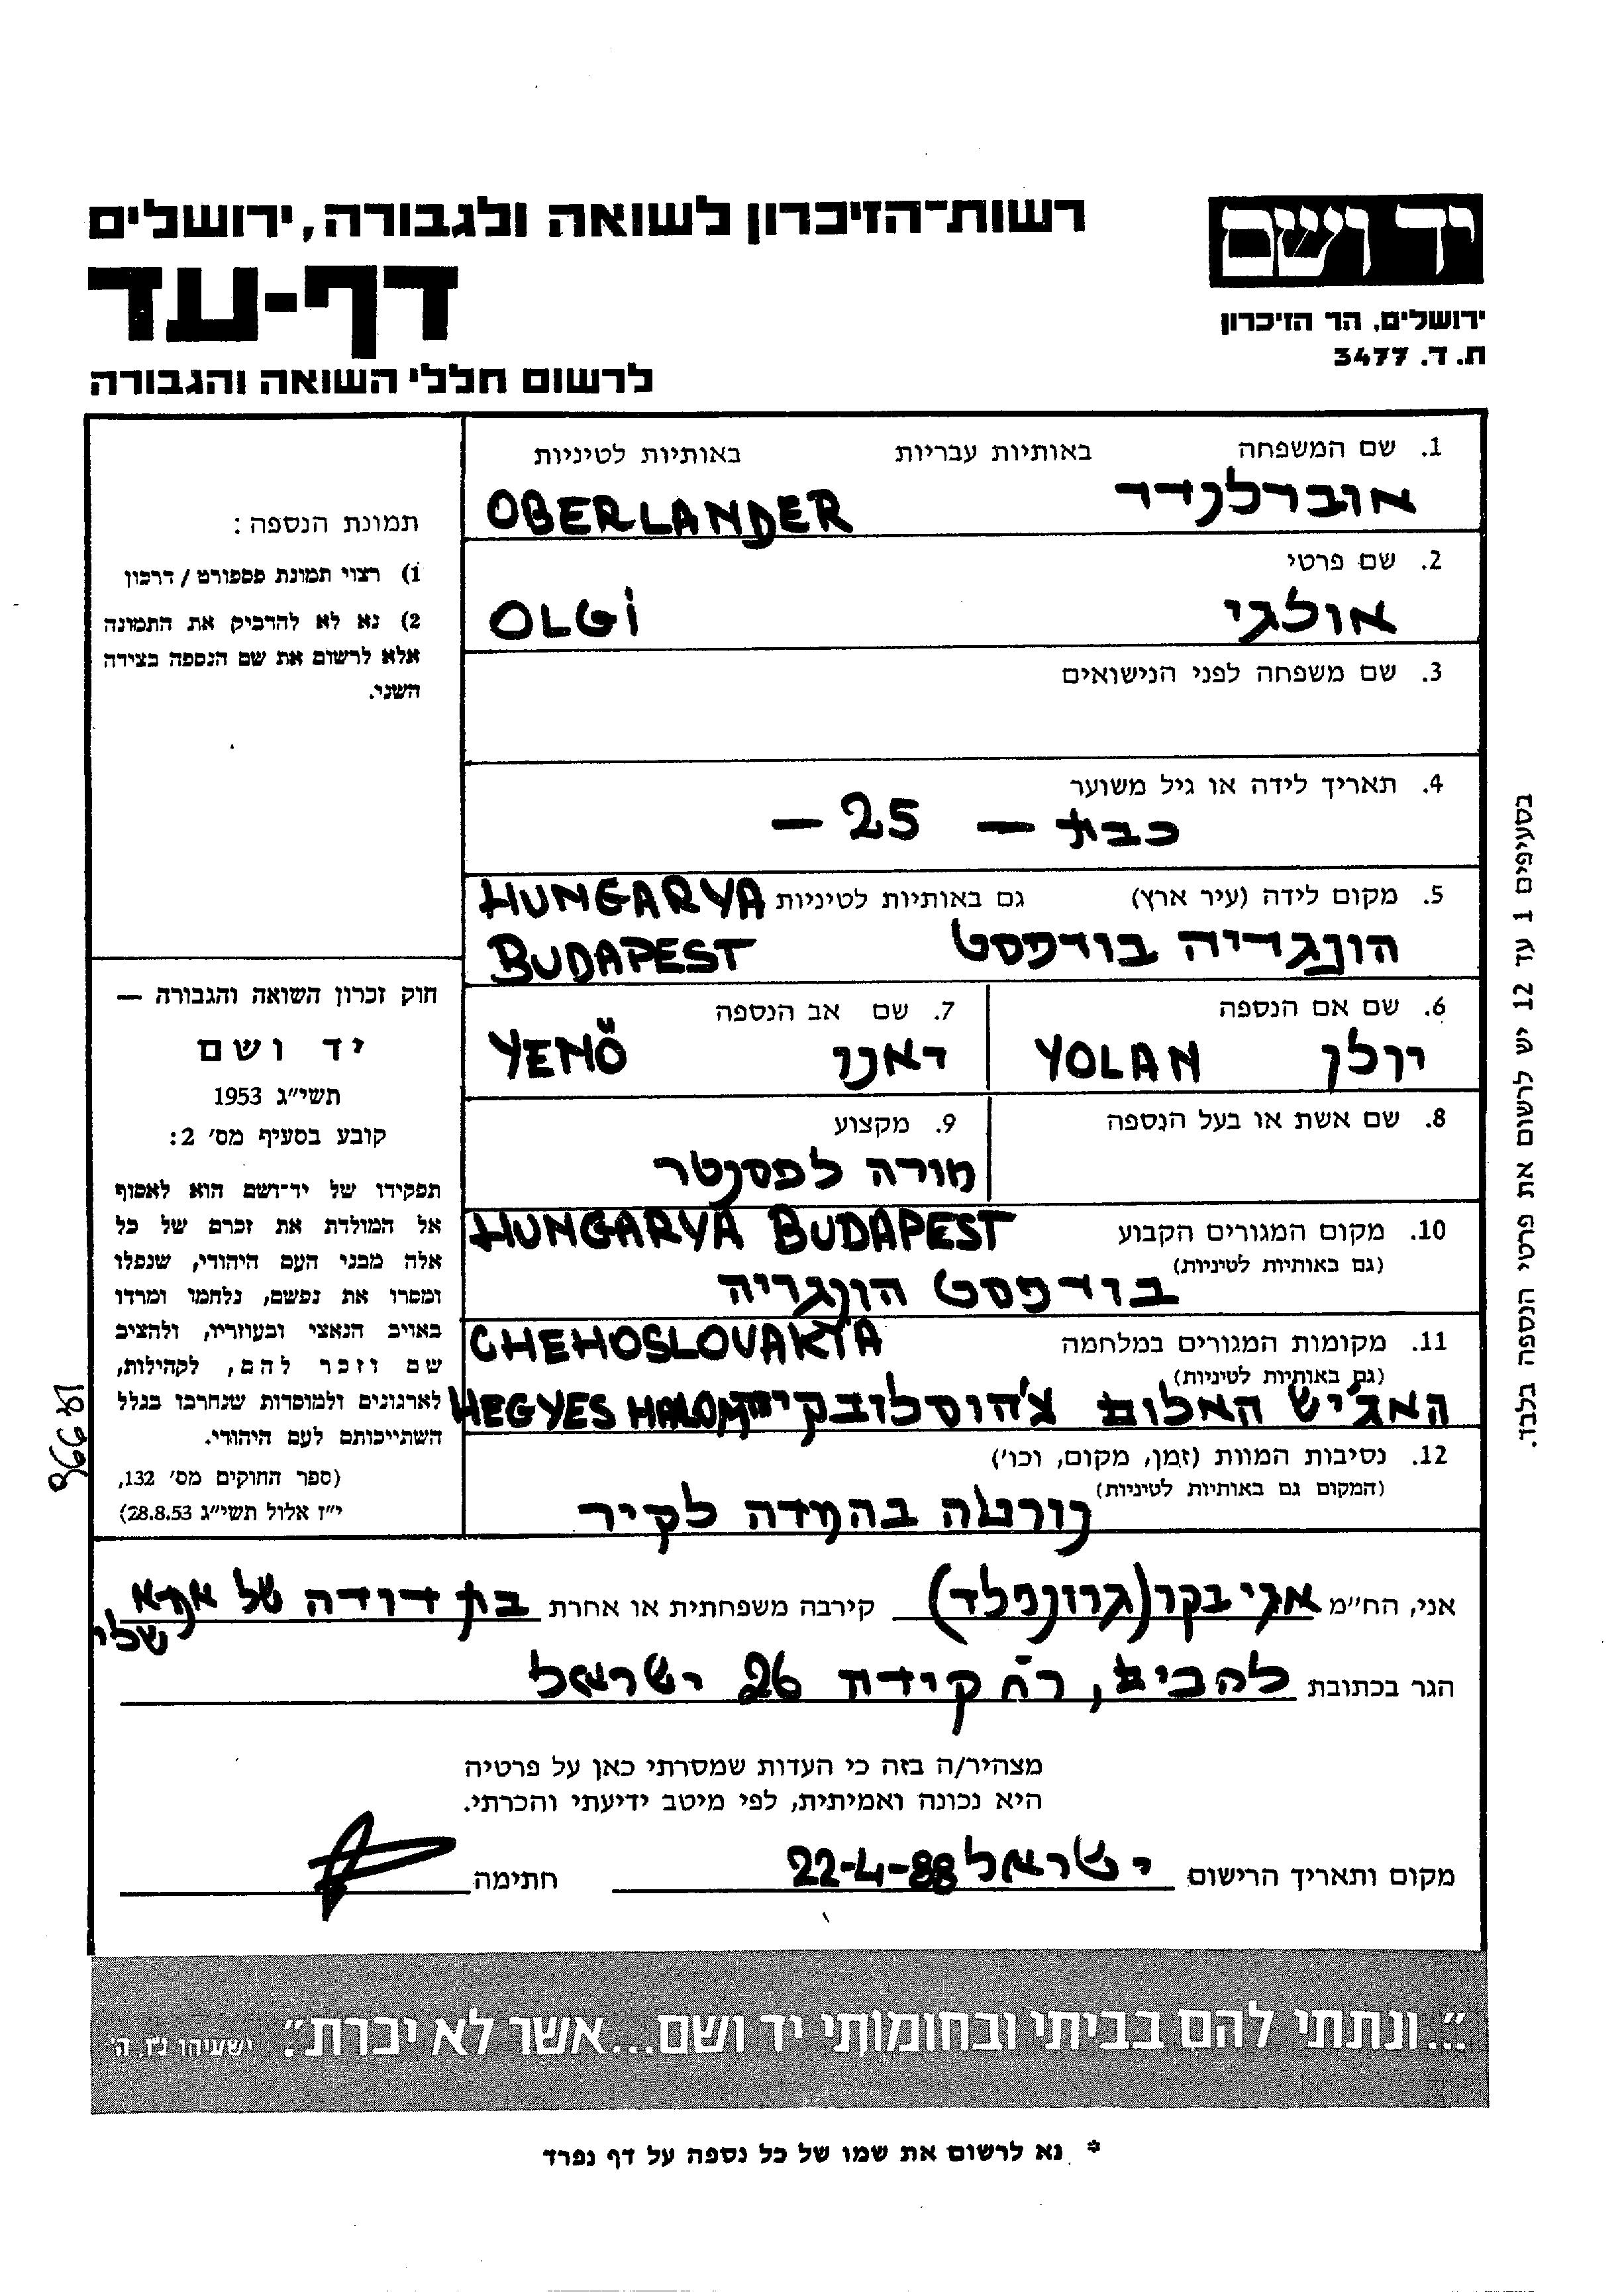 יד ושם
ירושלים, הר הזיכרון
ת. ד. 3477
רשות-הזיכרון לשואה ולגבורה, ירושלים
דף-עד
לרשום חללי השואה והגבורה
1. שם המשפחה באותיות עבריות באותיות לטיניות
אוברלנדר OBERLANDER
2. שם פרטי
אולגי OLGI
3. שם משפחה לפני הנישואים
4. תאריך לידה או גיל משוער
כבת — 25 —
5. מקום לידה (עיר ארץ) גם באותיות לטיניות HUNGARYA
הונגריה בודפסט BUDAPEST
6. שם אם הנספה
יולן YOLAN
7. שם אב הנספה
YENÖ
8. שם אשת או בעל הנספה
9. מקצוע
מורה לפסנטר
10. מקום המגורים הקבוע HUNGARYA BUDAPEST
(גם באותיות לטיניות)
בודפסט הונגריה
11. מקומות המגורים במלחמה CHEHOSLOVAKYA
(גם באותיות לטיניות)
האג'יש האלום צ'הוסלובקיה HEGYES HALOM
12. נסיבות המוות (זמן, מקום, וכו')
(המקום גם באותיות לטיניות)
נורטה בהמדה לקיר
תמונת הנספה:
1) רצוי תמונת פספורט / דרכון
2) נא לא להדביק את התמונה
אלא לרשום את שם הנספה בצידה
השני.
חוק זכרון השואה והגבורה —
יד ושם
תשי"ג 1953
קובע בסעיף מס' 2:
תפקידו של יד-ושם הוא לאסוף
אל המולדת את זכרם של כל
אלה מבני העם היהודי, שנפלו
ומסרו את נפשם, נלחמו ומרדו
באויב הנאצי ובעוזריו, ולהציב
שם וזכר להם, לקהילות,
לארגונים ולמוסדות שנחרבו בגלל
השתייכותם לעם היהודי.
(ספר החוקים מס' 132,
י"ז אלול תשי"ג 28.8.53)
בסעיפים 1 עד 12 יש לרשום את פרטי הנספה בלבד.
אני, הח"מ אגי בקר (גרוזנפלד) קירבה משפחתית או אחרת בת דודה של אמא
שלי
הגר בכתובת להבים, רח קידה 26 ישראל
מצהיר/ה בזה כי העדות שמסרתי כאן על פרטיה
היא נכונה ואמיתית, לפי מיטב ידיעתי והכרתי.
מקום ותאריך הרישום ישראל 22-4-88 חתימה
"...ונתתי להם בביתי ובחומותי יד ושם...אשר לא יכרת". ישעיהו נו, ה'
* נא לרשום את שמו של כל נספה על דף נפרד